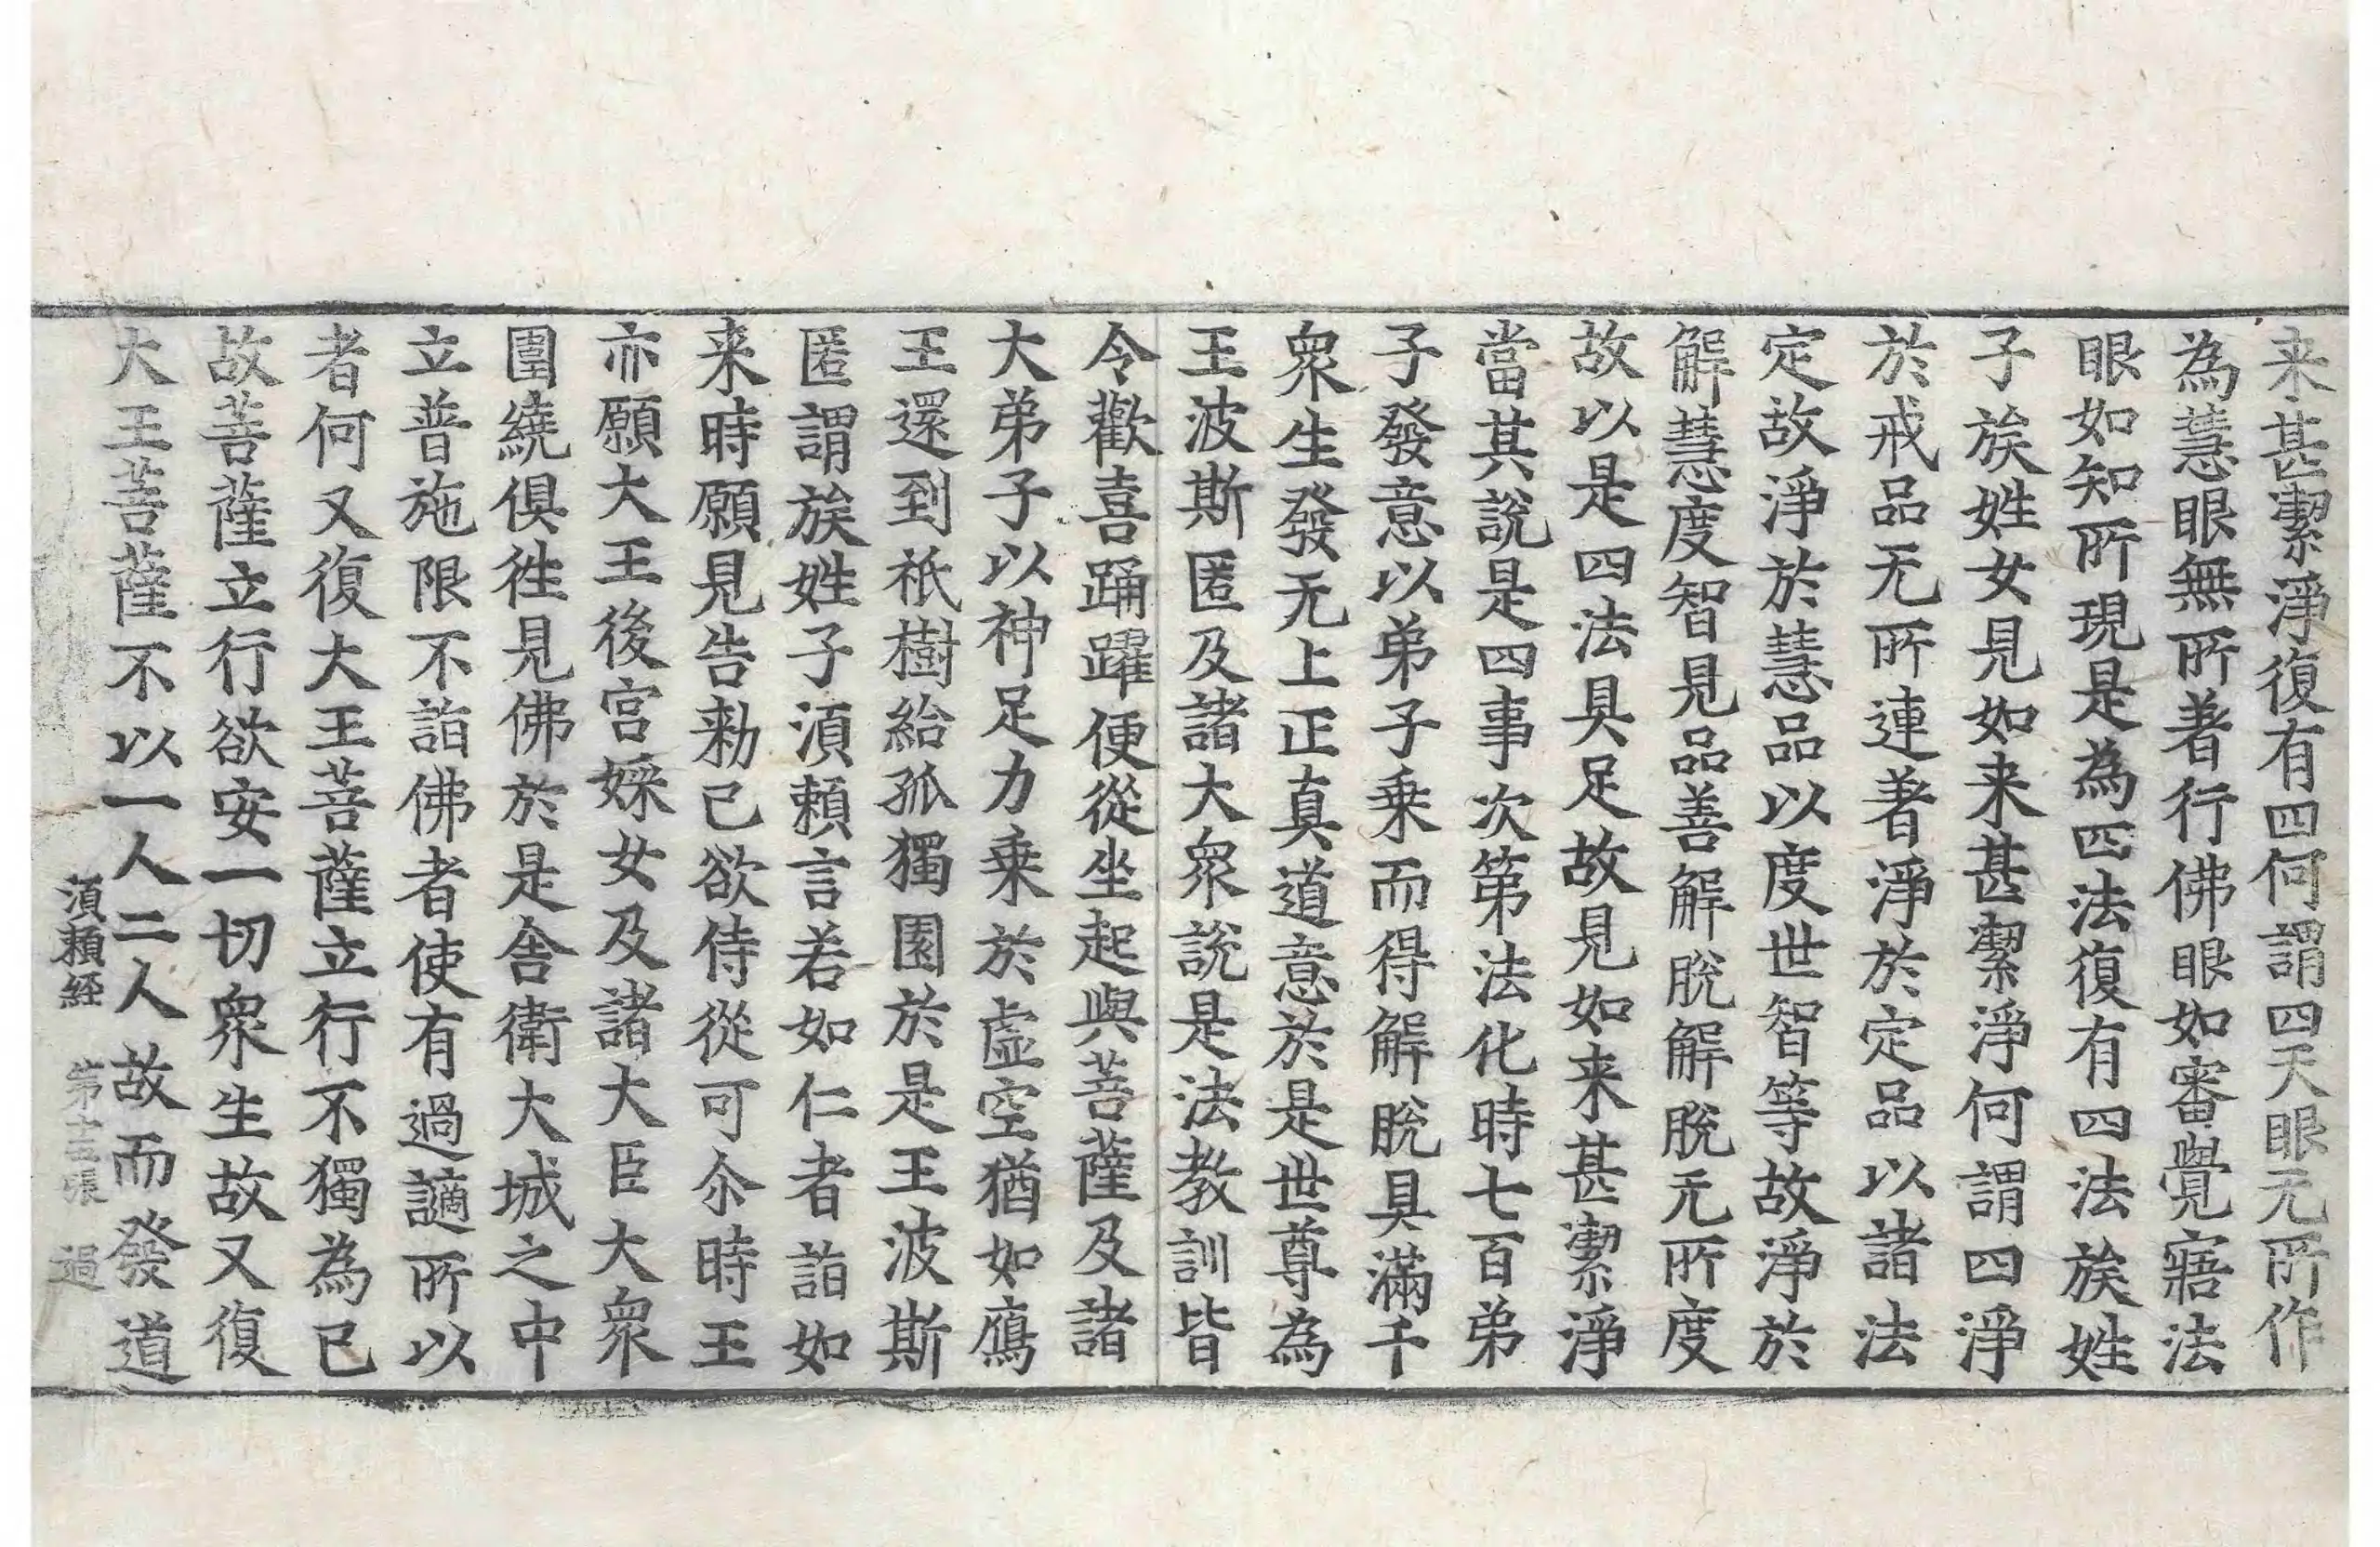 来甚潔淨復有四何謂四天眼无所作
為慧眼無所著行佛眼如審覺寤法
眼如知所現是為四法復有四法族姓
子族姓女見如来甚潔淨何謂四淨
於戒品无所連著淨於定品以諸法
定故淨於慧品以度世智等故淨於
解慧度智見品善解脫解脫无所度
故以是四法具足故見如来甚潔淨
當其說是四事次第法化時七百弟
子發意以弟子乗而得解脫具滿千
衆生發无上正真道意於是世尊為
王波斯匿及諸大衆說是法教訓皆
令歡喜踊躍便從坐起與菩薩及諸
大弟子以神足力乗於虛空猶如鴈
王還到祇樹給孤獨園於是王波斯
匿謂族姓子湏賴言若如仁者詣如
来時願見告勑已欲侍從可尒時王
亦願大王後宮婇女及諸大臣大衆
圍繞俱徃見佛於是舎衛大城之中
立普施限不詣佛者使有過謫所以
者何又復大王菩薩立行不獨為已
故菩薩立行欲安一切衆生故又復
大王菩薩不以一人二人故而發道
湏賴経 第十五張 過